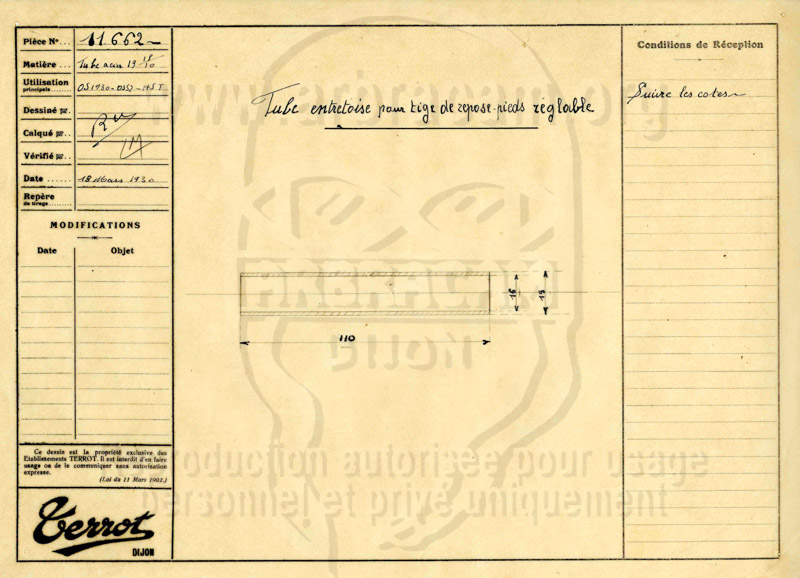 Pièce N° ... 11662
Matière ... Tube acier 19 16/10
Utilisation
principale ...... OS1930-OSS
Dessiné par ..
Calqué par ..
Vérifié par ..
Date ....... 18 Mars 1930
Repère
de tirage ........
MODIFICATIONS
Date Objet
Ce dessin est la propriété exclusive des
Etablissements TERROT. Il est interdit d'en faire
usage ou de le communiquer sans autorisation
expresse.
(Loi du 11 Mars 1902.)
Terrot
DIJON
Tube entretoise pour tige de repose-pieds reglable
16
19
110
Conditions de Réception
Suivre les cotes
www.arbracam.org
ARBRACAM
DIJON
reproduction autorisée pour usage
personnel et privé uniquement